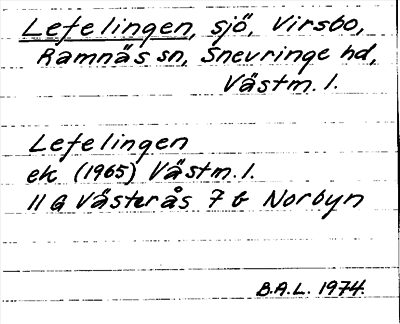 Lefelingen, sjö, Virsbo,
Ramnäs sn, Snevringe hd,
Västm. l.
Lefelingen
ek (1965) Västm. l.
11 G Västerås 7 b Norbyn
B.A.L. 1974.